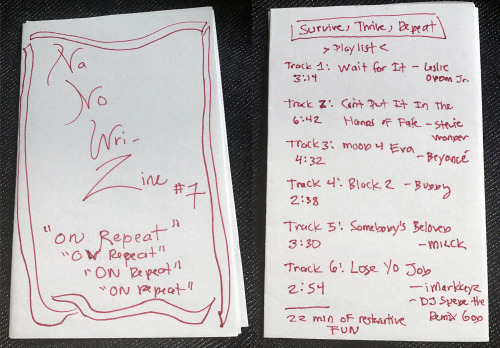 Na
No
Wri-
Zine #7
"ON Repeat"
"ON Repeat"
"ON Repeat"
"ON Repeat"
Survive, Thrive, Repeat
> Playlist <
Track 1: Wait for It - Leslie
3:14 Odom Jr.
Track 2: Can't Put It In the
6:42 Hands of Fate - Stevie
Wonder
Track 3: mood 4 Eva
4:32 - Beyoncé
Track 4: Black 2 - Buddy
2:38
Track 5: Somebody's Beloved
3:30 - MILCK
Track 6: Lose Yo Job
2:54 - iMarkkeyz
- DJ Suede the
Remix God
22 min of restorative
FUN